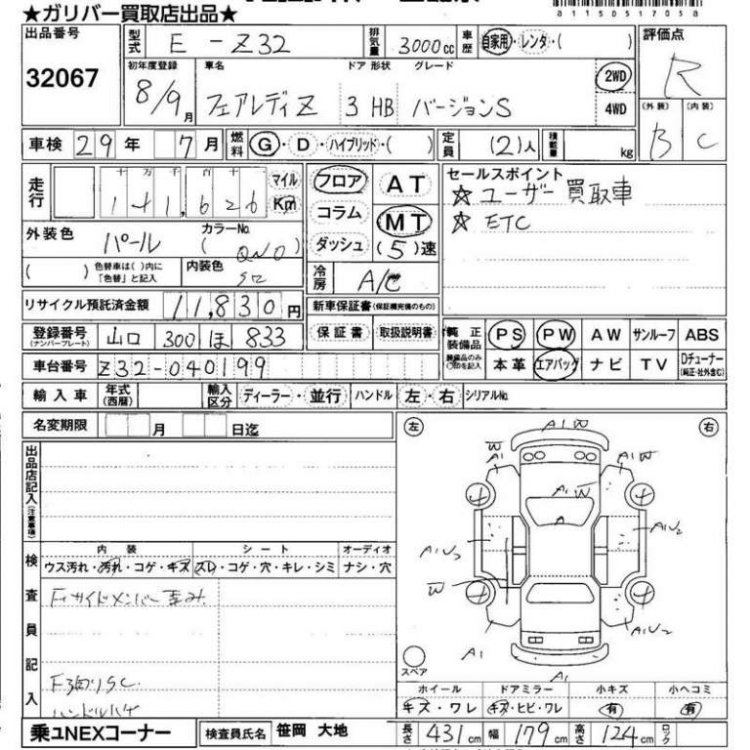 ★ガリバー買取店出品★
81150517058
出品番号 32067
型式 E-Z32 排気量 3000cc 車歴 自家用・レンタ・( )
評価点 R
初年度登録 8/9月 車名 フェアレディZ ドア 形状 3 HB グレード バージョンS 2WD 4WD
(外装) B (内装) C
車検 29年 7月 燃料 G・D・ハイブリッド・( ) 定員 (2)人 積載量 kg
走行 十 万 千 百 十 141,626 マイル Km
フロア コラム ダッシュ AT MT (5)速
セールスポイント
☆ ユーザー買取車
☆ ETC
外装色 パール カラーNo. (QN0)
( ) 色替車は( )内に「色替」と記入 内装色
冷房 A/C
リサイクル預託済金額 11,830円
新車保証書(保証継続後のもの)
保証書 取扱説明書
登録番号 (ナンバープレート) 山口 300 ほ 833
純正装備品 PS PW AW サンルーフ ABS
本革 エアバッグ ナビ TV Dチューナー (純正・社外含む)
車台番号 Z32-040199
輸入車 年式(西暦) 輸入区分 ディーラー・並行 ハンドル 左・右 シリアルNo.
名変期限 月 日迄
左 右
出品店記入(注意事項)
検査員記入
内装 シート オーディオ
ウス汚れ・汚れ・コゲ・キズ スレ・コゲ・穴・キレ・シミ ナシ・穴
Fサイドメンバー歪み
ハンドルハゲ
A1 W
W A1
A1 W
A1 W
A
A1U3
A1U2
W
A1U2
A1
A1
スペア
ホイール ドアミラー 小キズ 小ヘコミ
キズ・ワレ キズ・ヒビ・ワレ 有 有
乗ユNEXコーナー 検査員氏名 笹岡 大地
長さ 431cm 幅 179cm 高さ 124cm